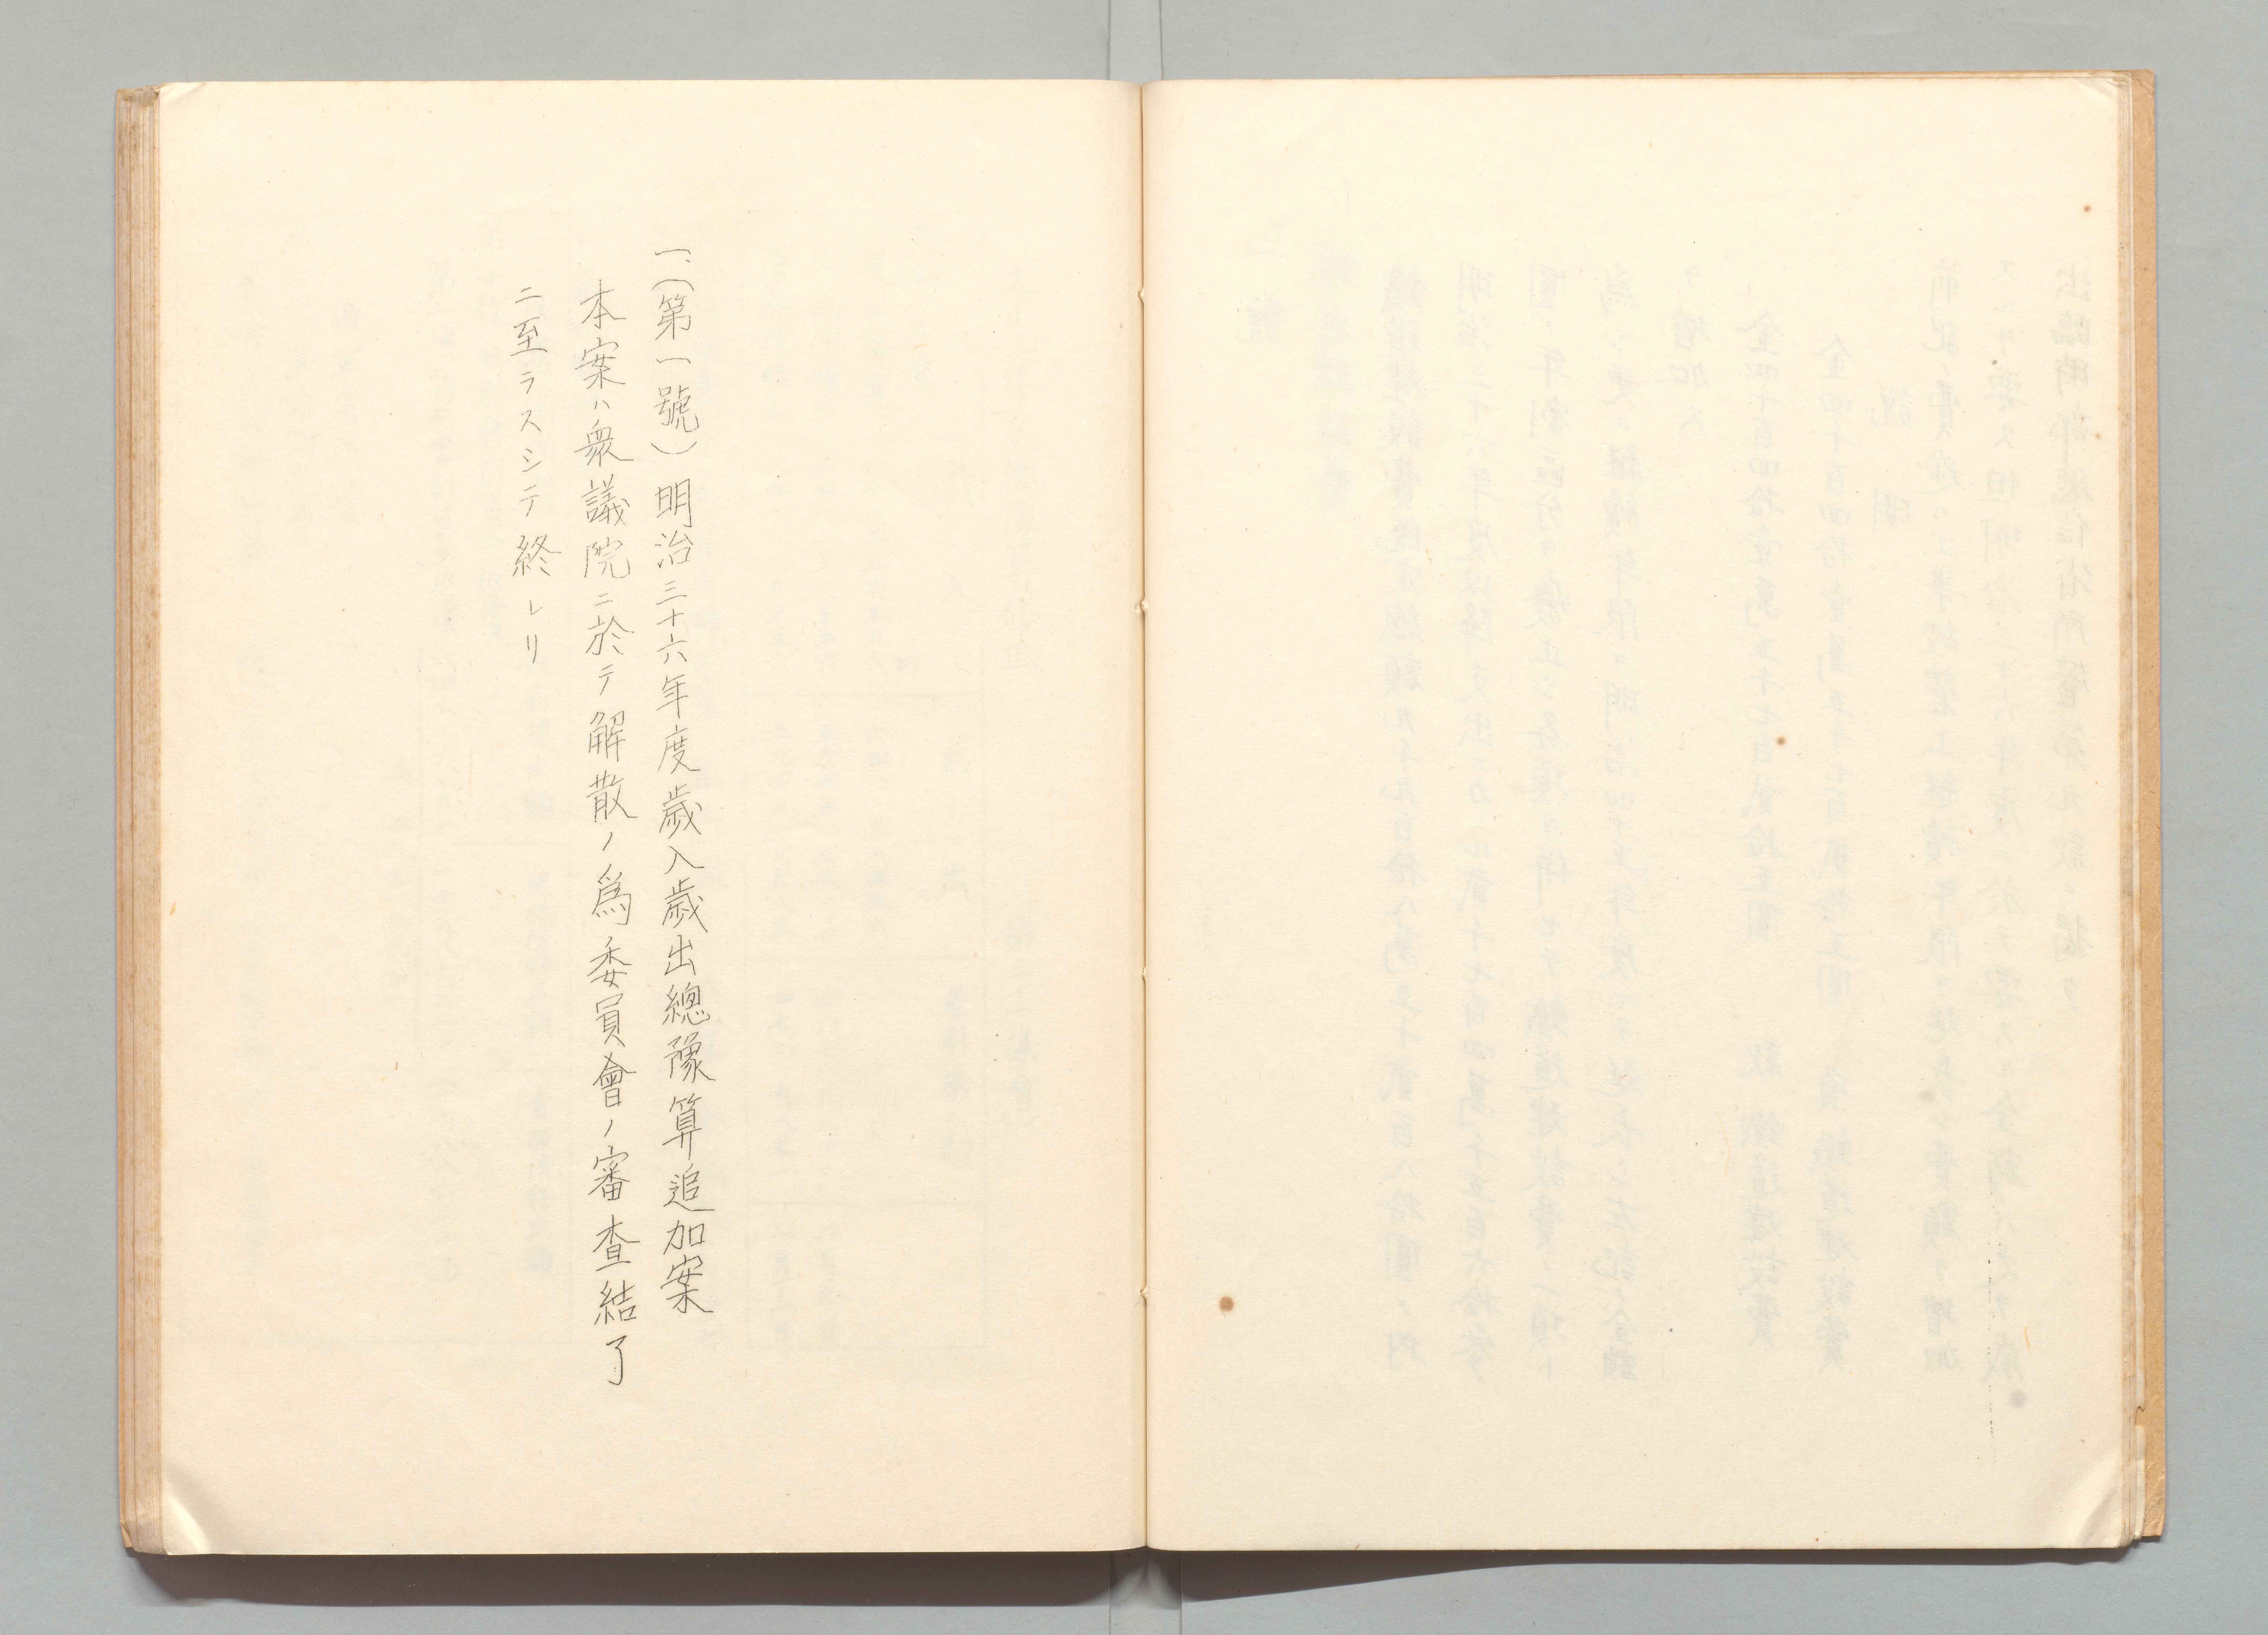 一、(第一號)明治三十六年度歳入歳出總豫算追加案
本案ハ衆議院ニ於テ解散ノ爲委員會ノ審査結了
ニ至ラスシテ終レリ